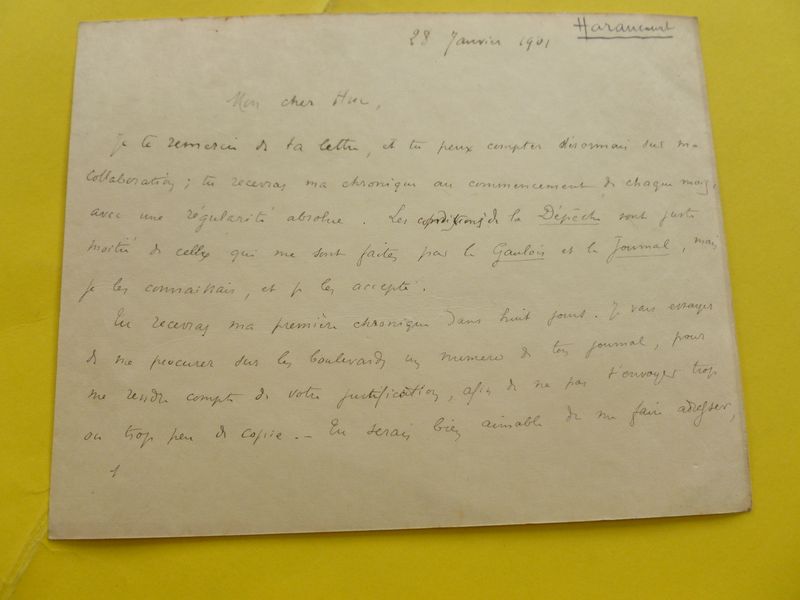 Haraucourt
28 Janvier 1901
Mon cher Huc,
Je te remercie de ta lettre, et tu peux compter désormais sur ma
collaboration ; tu recevras ma chronique au commencement de chaque mois,
avec une régularité absolue. Les conditions de la Dépêche sont juste
moitié de celles qui me sont faites par le Gaulois et le Journal, mais
je les connaissais, et je les accepte.
Tu recevras ma première chronique dans huit jours. Je vais essayer
de me procurer sur les boulevards un numero de ton journal, pour
me rendre compte de votre justification, afin de ne pas t'envoyer trop
ou trop peu de copie. — Tu serais bien aimable de me faire adresser,